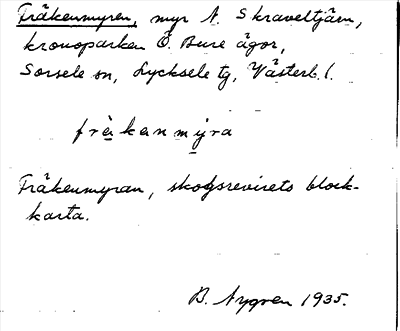 Fräkenmyren, myr N. Skraveltjärn,
kronoparken Ö. Bure ägor,
Sorsele sn, Lycksele tg, Västerb. l.
fräkenmyra
Fräkenmyran, skogsrevirets block-
karta.
B. Nygren 1935.